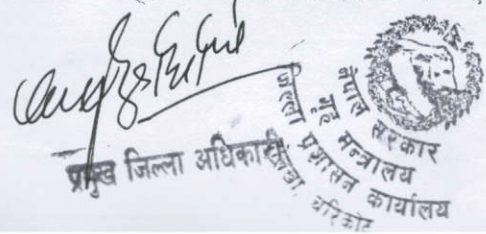 प्रमुख जिल्ला अधिकारी
नेपाल सरकार
गृह मन्त्रालय
जिल्ला प्रशासन कार्यालय
चरिकोट